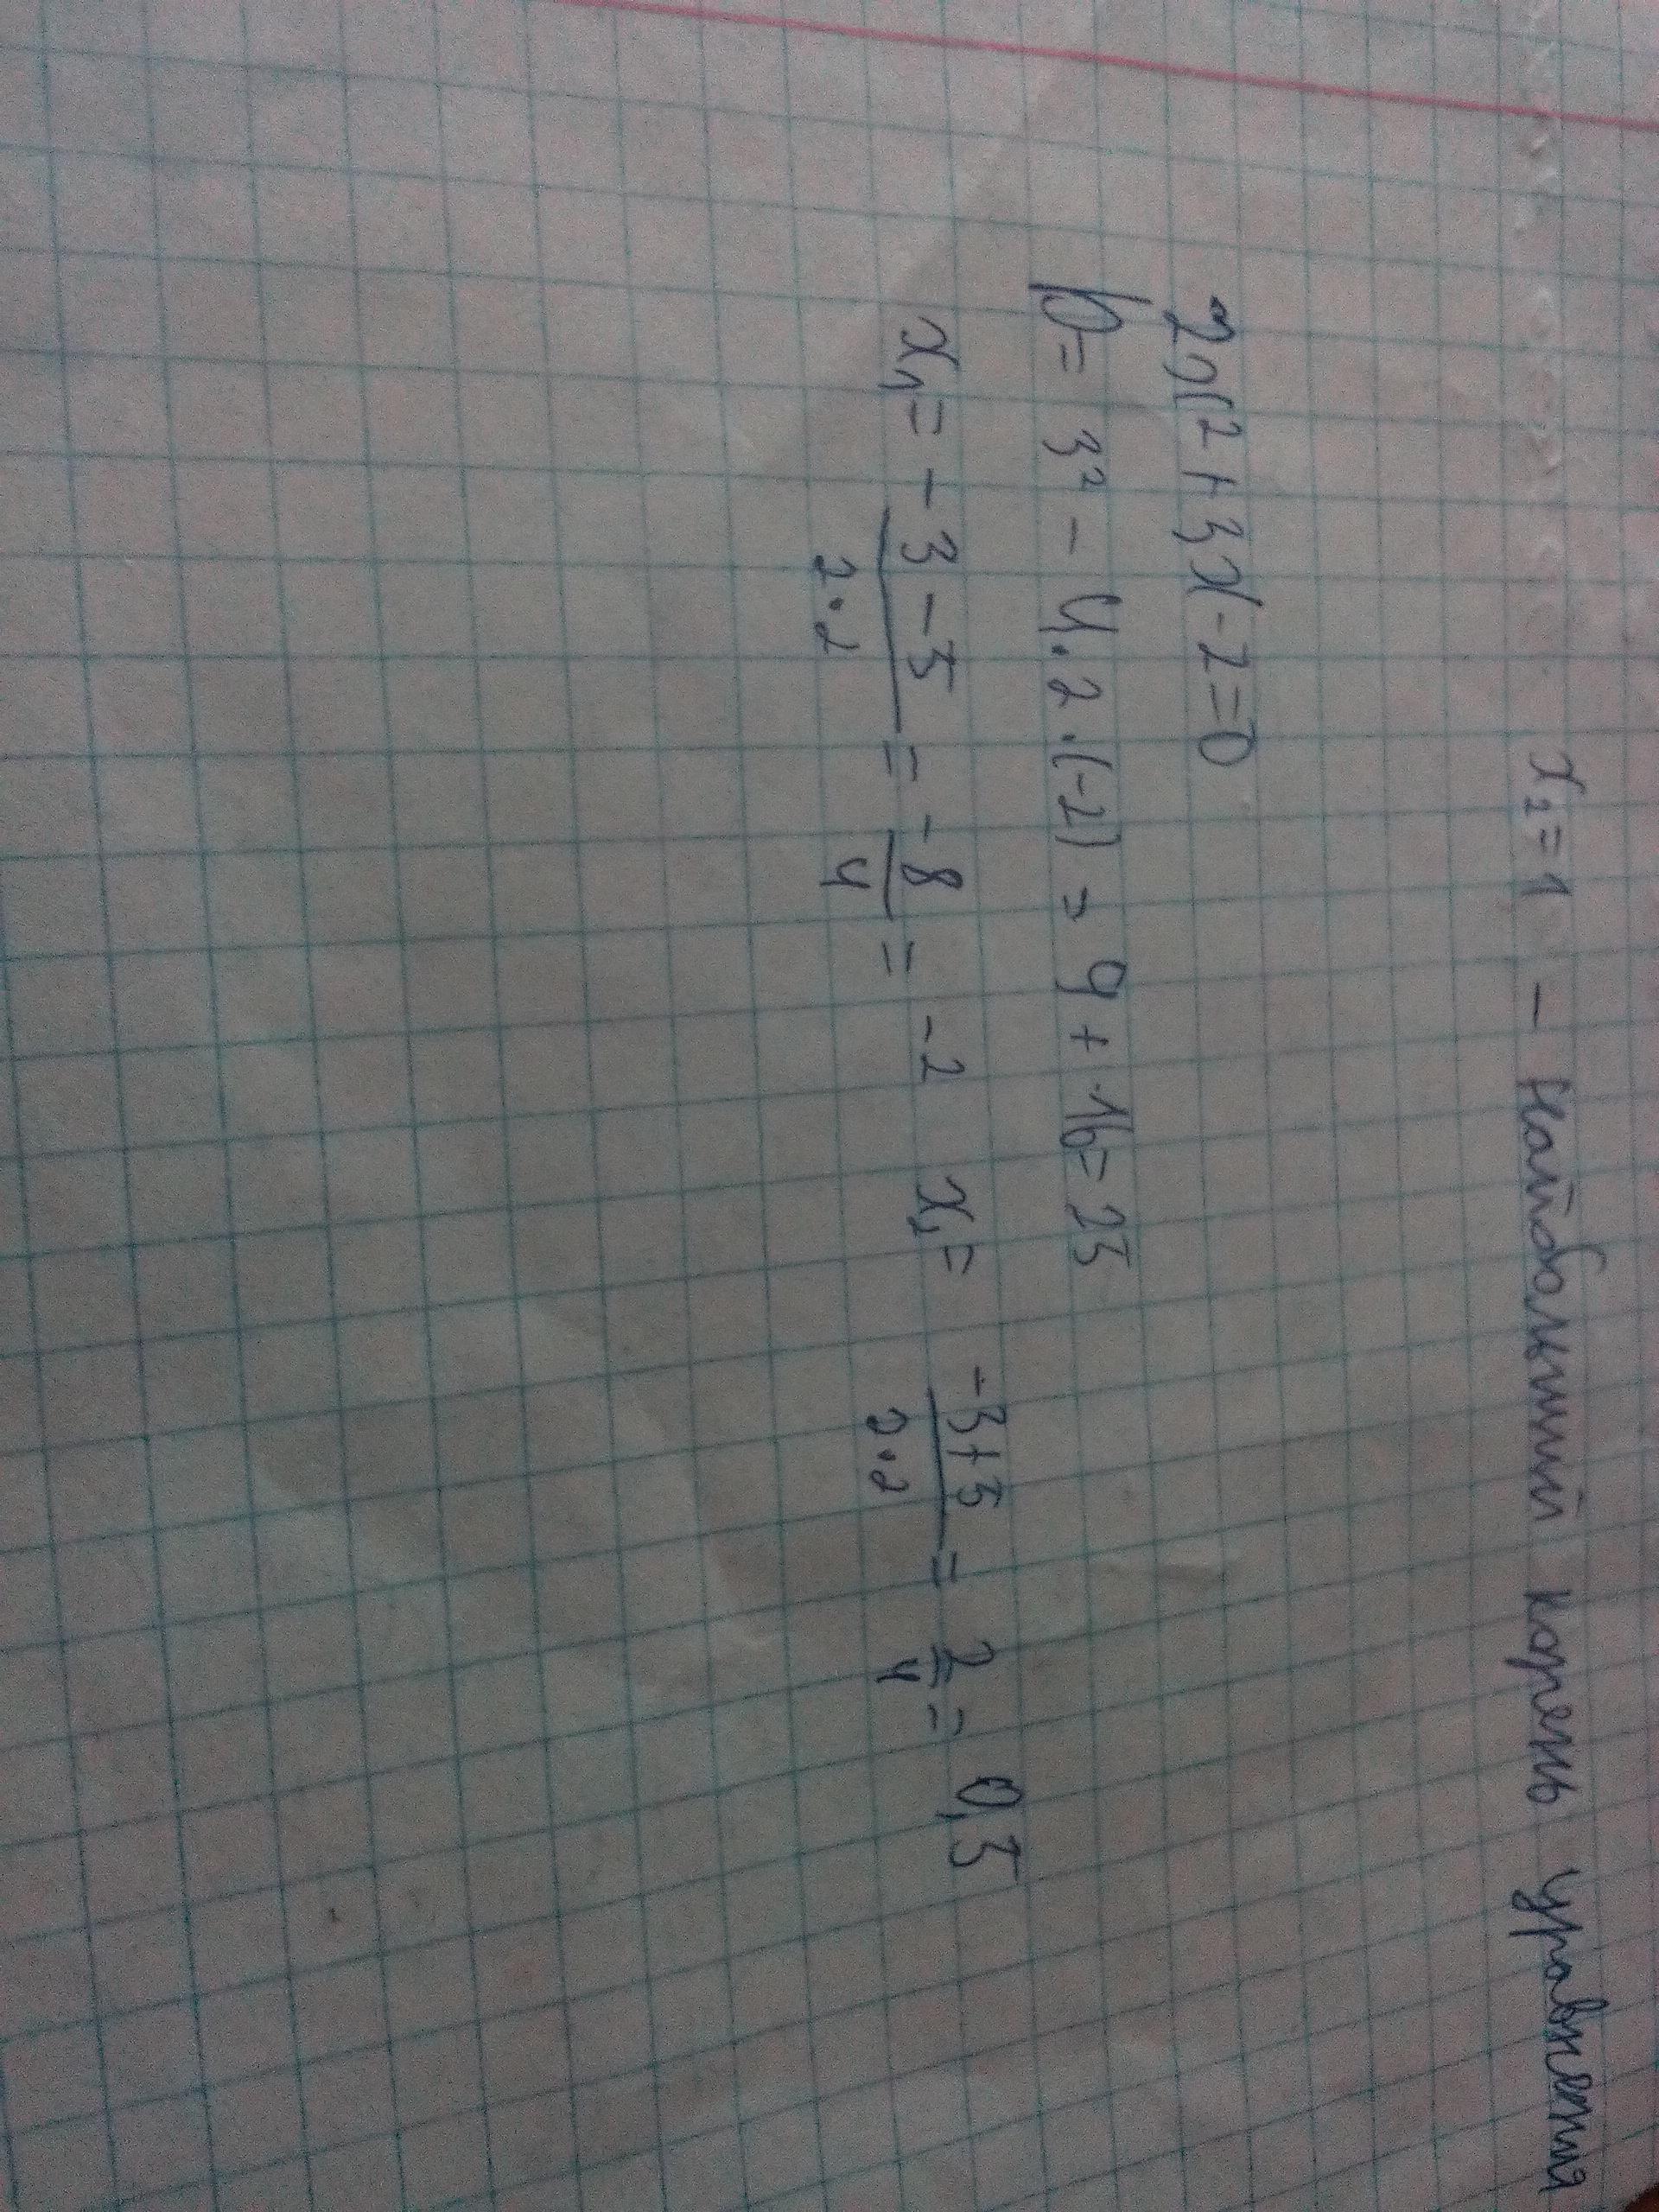 x₂ = 1 – наибольший корень уравнения
2x² + 3x - 2 = 0
D = 3² - 4 · 2 · (-2) = 9 + 16 = 25
x₁ = \frac{-3-5}{2·2} = \frac{-8}{4} = -2 x₂ = \frac{-3+5}{2·2} = \frac{2}{4} = 0,5